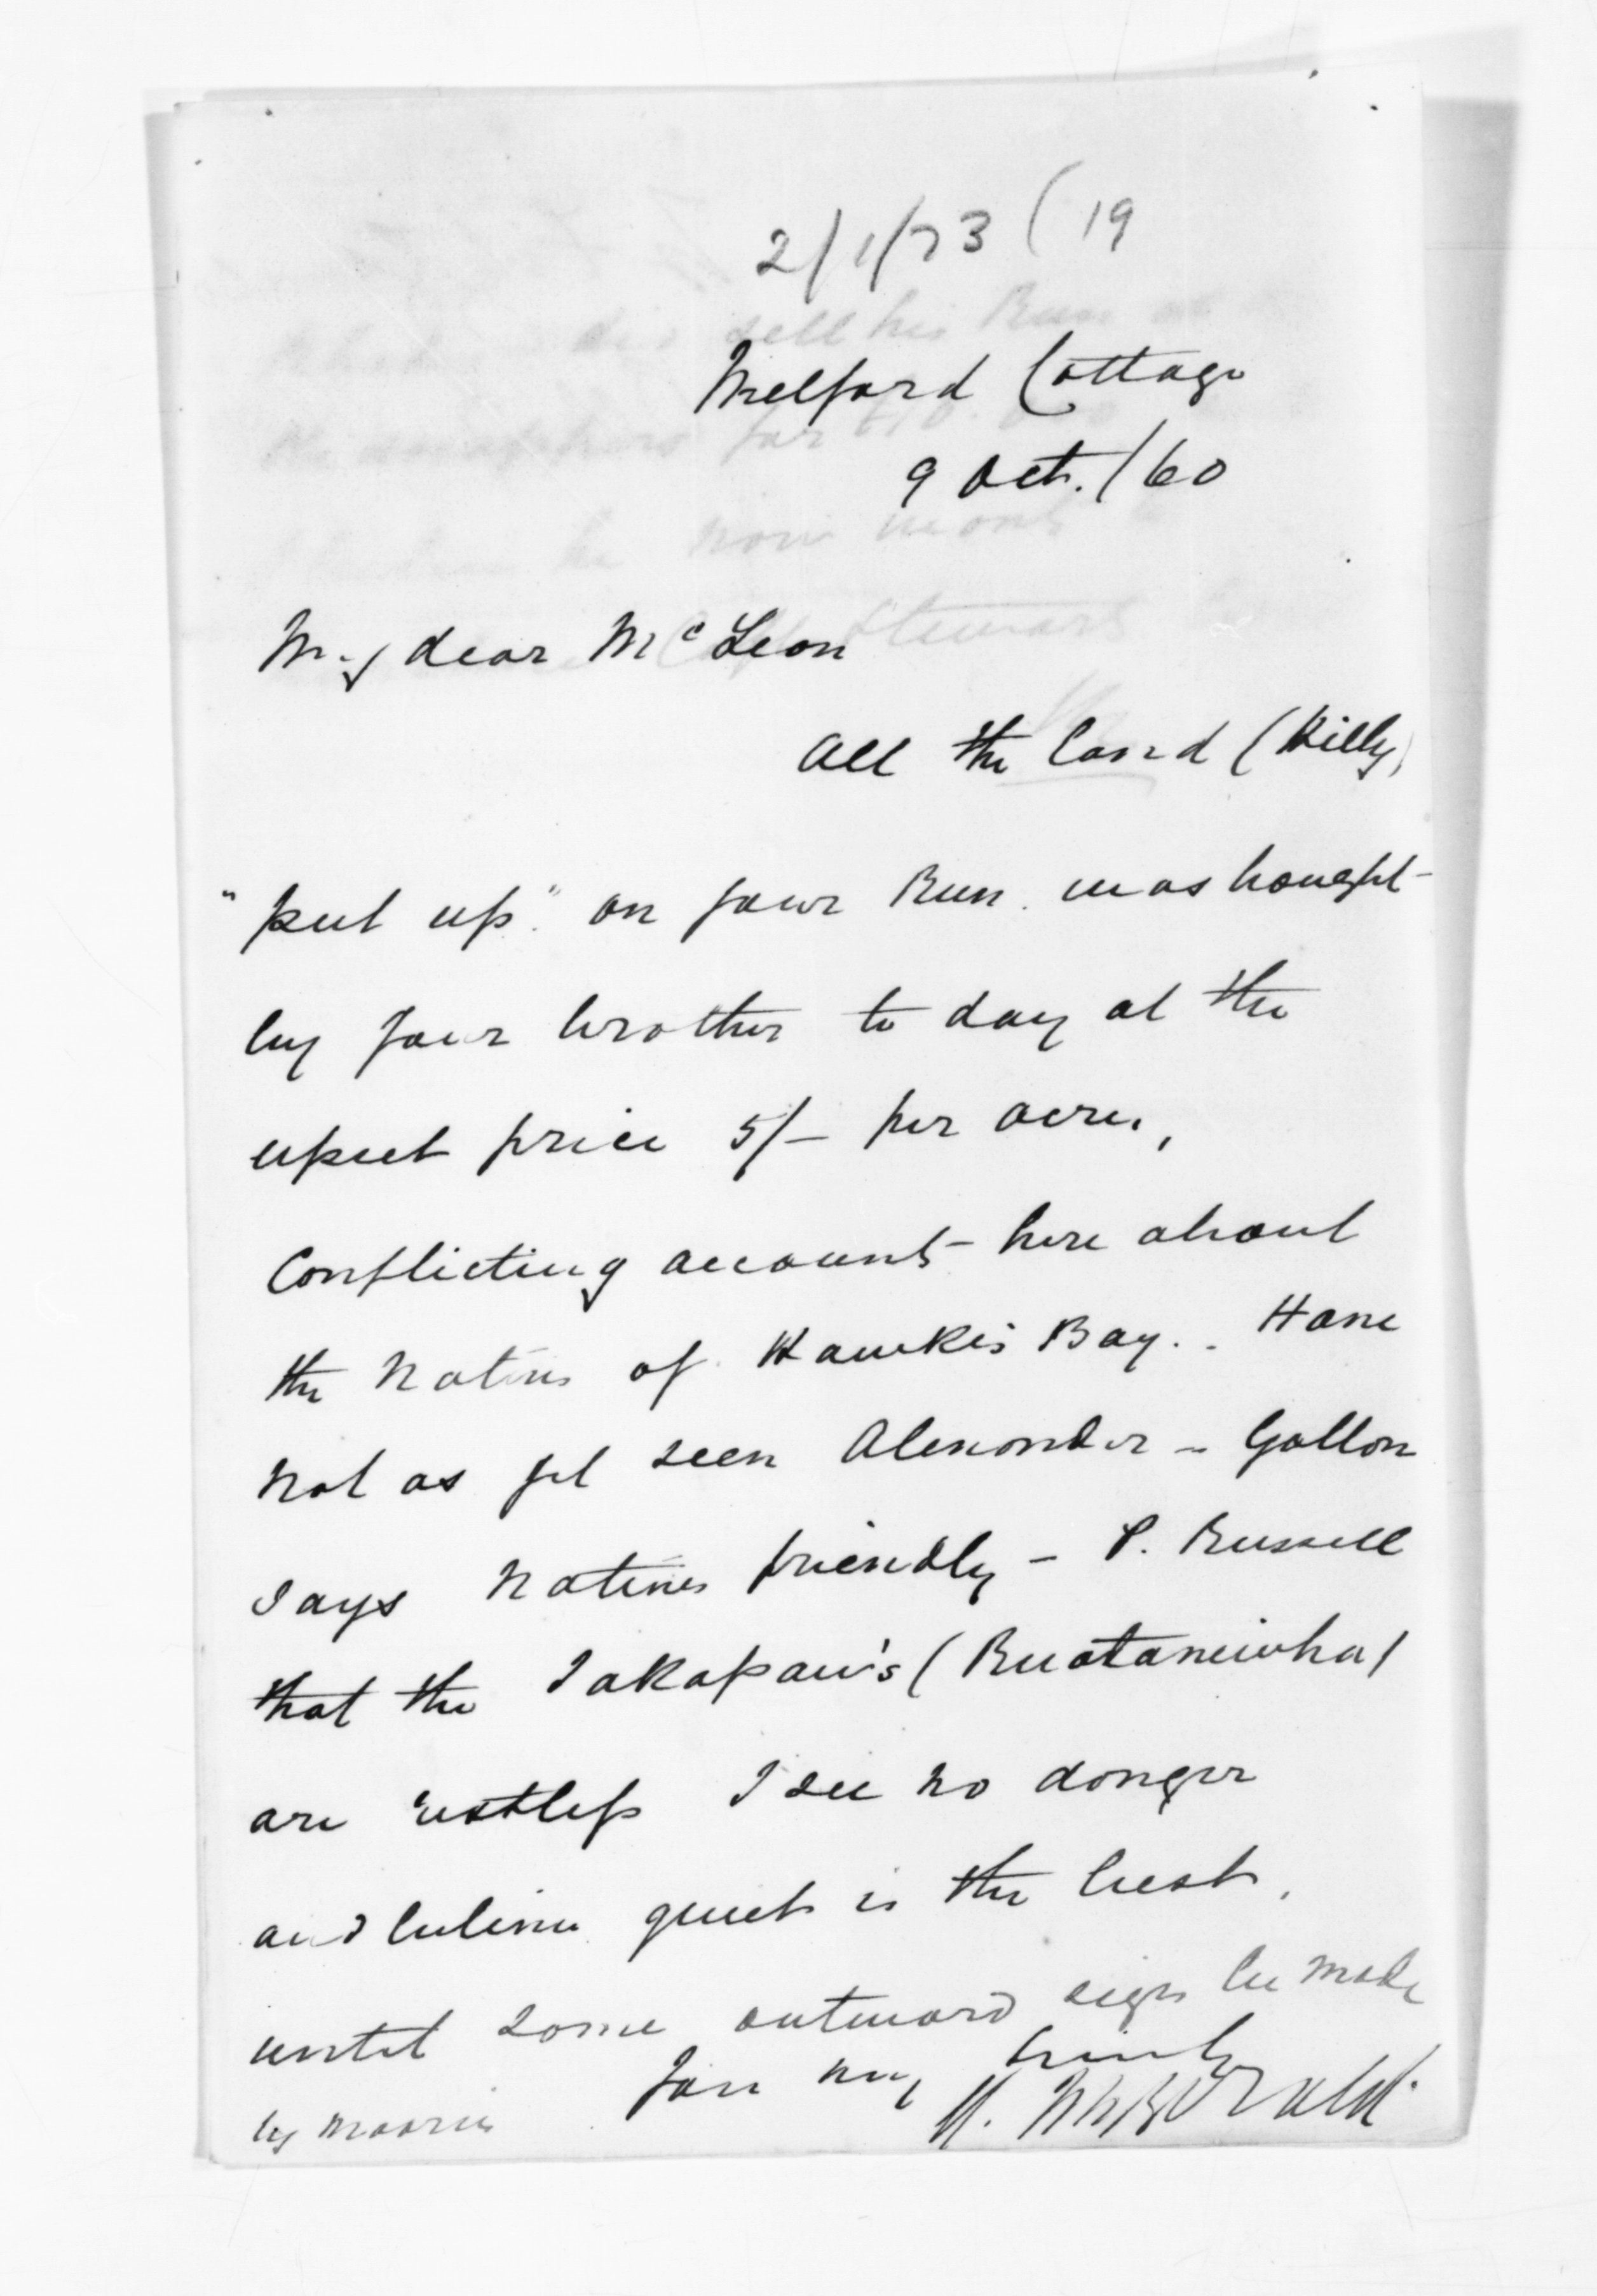 2/1/73 (19
Milford Cottage
9 Oct. /60
My dear McLean
All the land (Hilly)
"put up" on your Run. was bought
by your brother to day at the
upset price 5/- per acre.,
Conflicting accounts here about
the Natives of Hawke's Bay.. Have
not as yet seen Alexander - Gollan
says Natives friendly - P. Russell
that the Takapau's (Ruataniwha)
are restless I see no danger
and believe quiet is the best.
until some outward sign be made
by Maoris
Yours